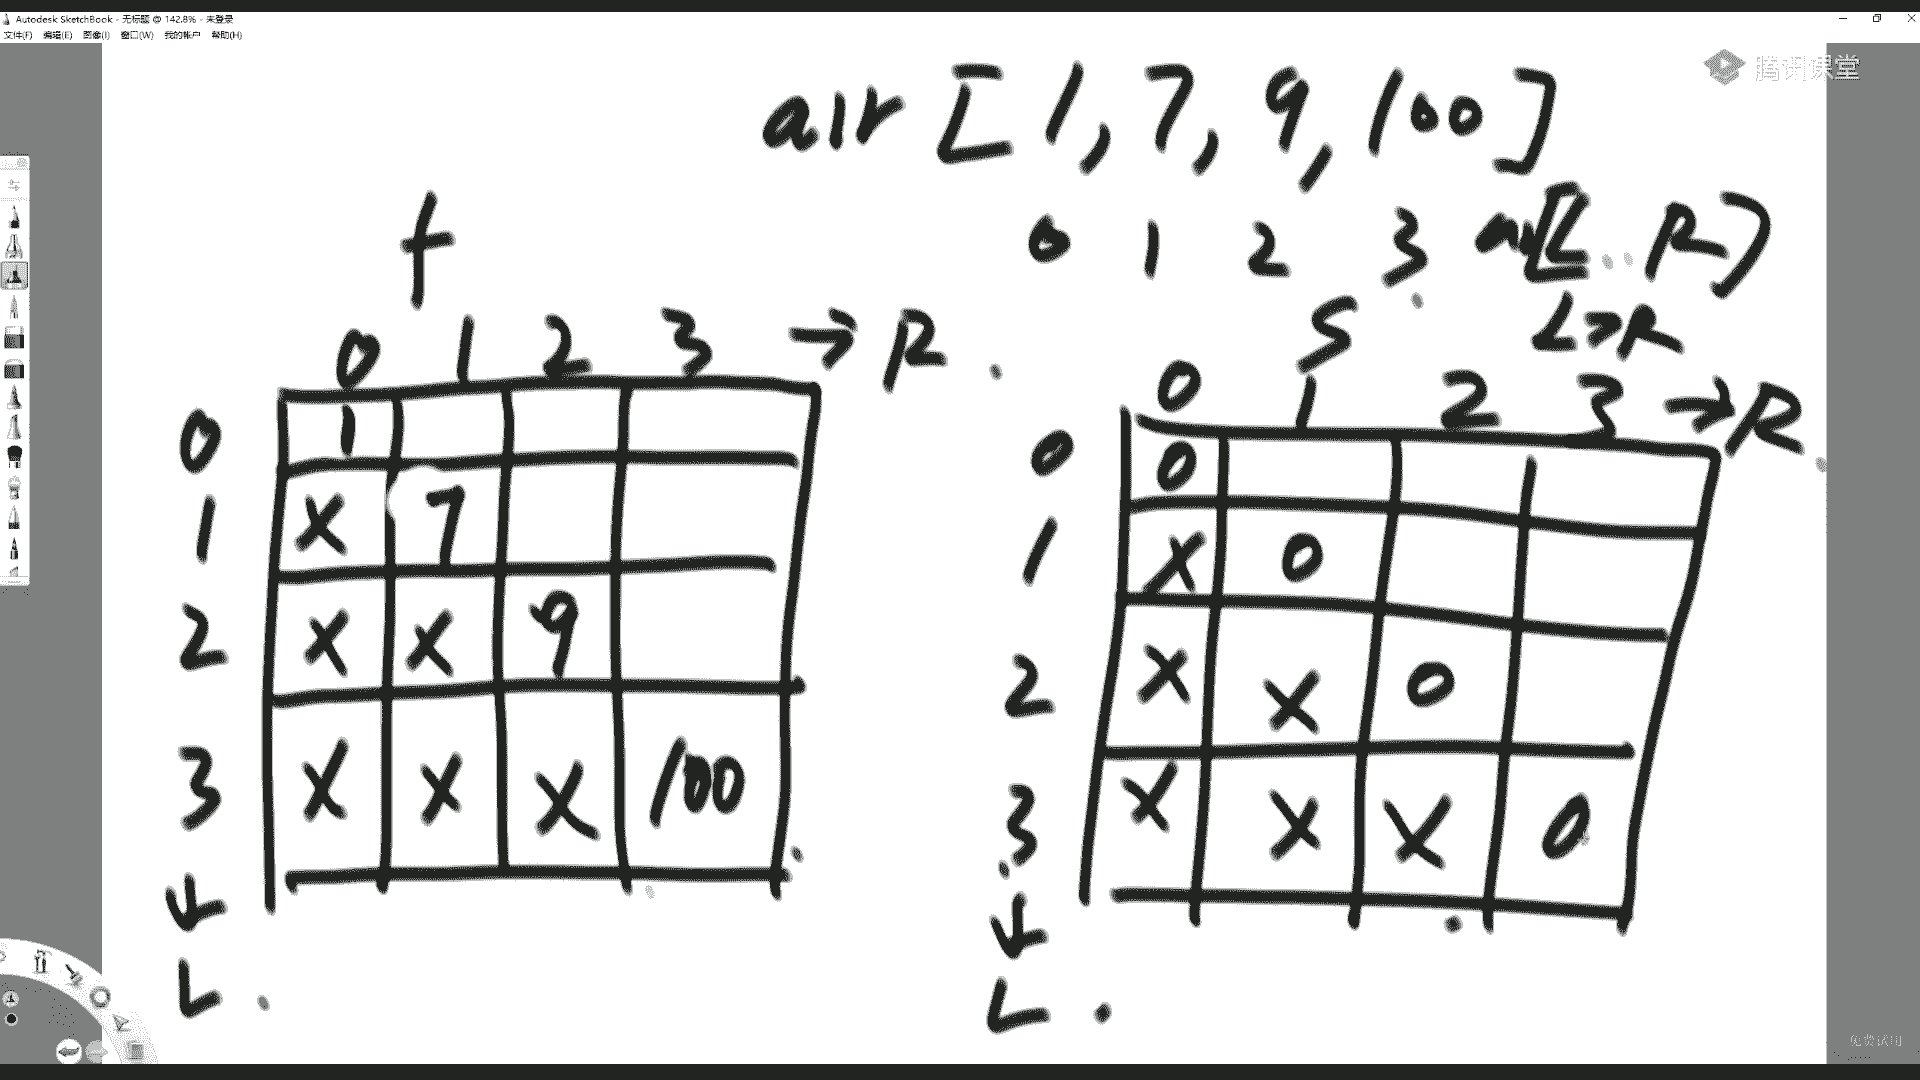 Autodesk SketchBook - 无标题 @ 142.8% - 未登录
文件(F) 编辑(E) 图像(I) 窗口(W) 我的帐户 帮助(H)
腾讯课堂
arr [1, 7, 9, 100]
0 1 2 3 arr[L..R]
L>R
f
0 1 2 3 → R
0 1
1 X 7
2 X X 9
3 X X X 100
↓
L
S
0 1 2 3 → R
0 0
1 X 0
2 X X 0
3 X X X 0
↓
L
免费试用